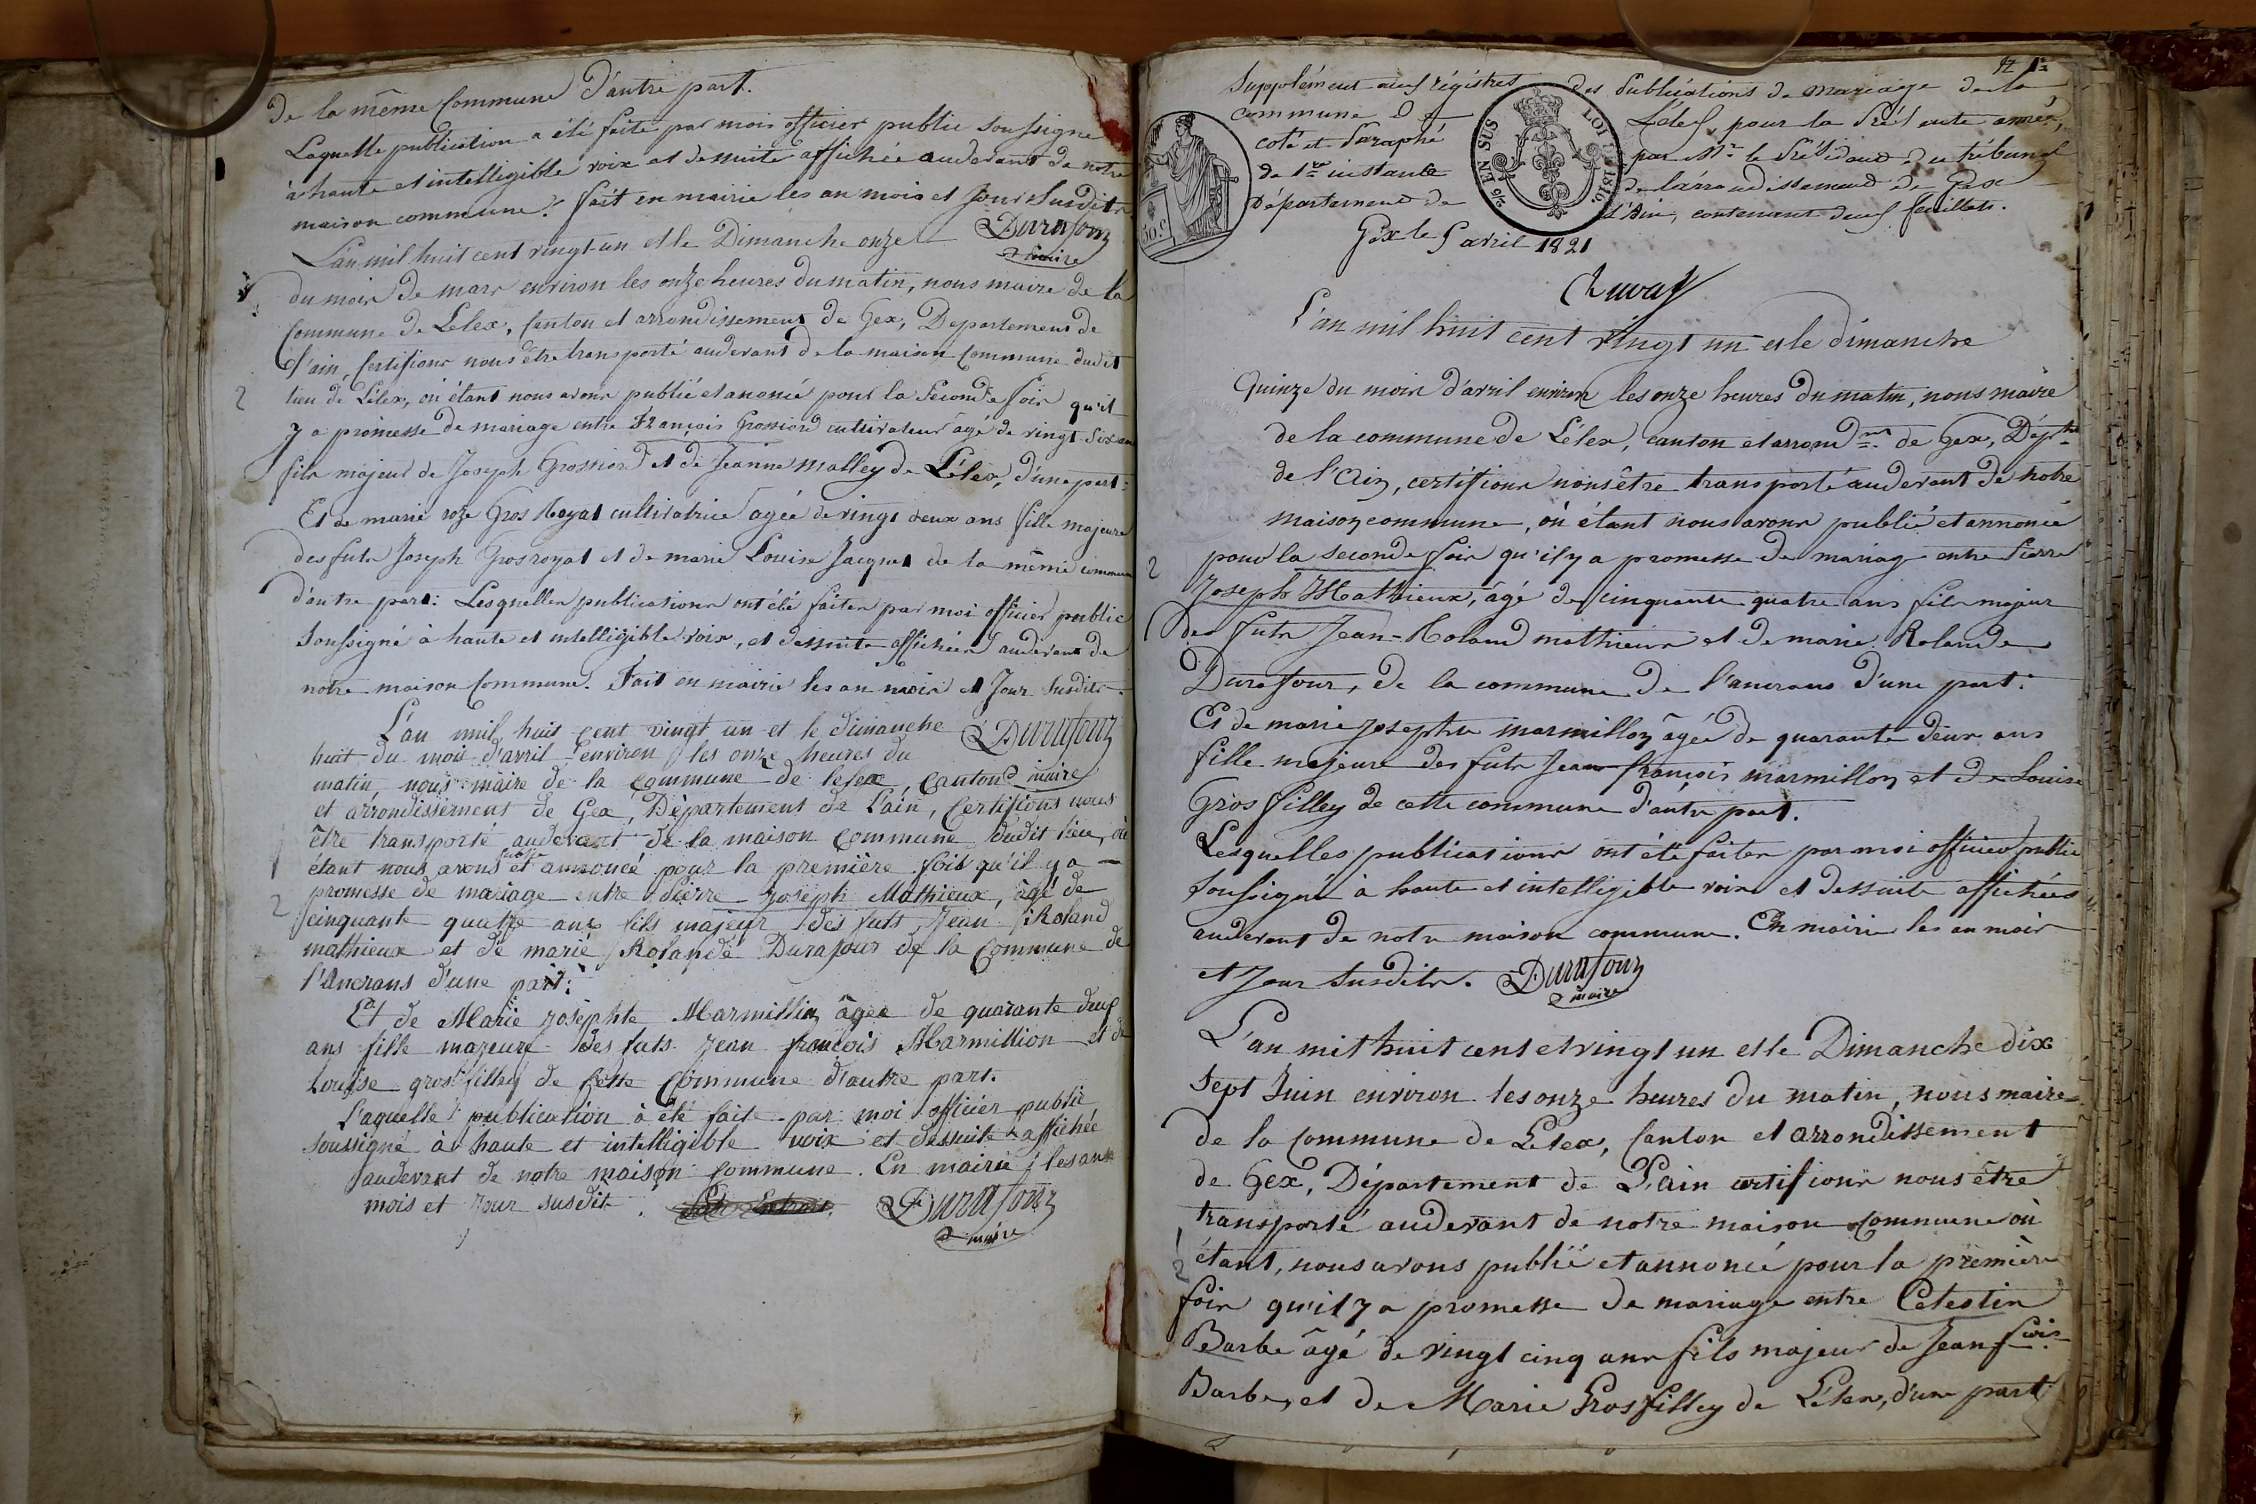 de la même Commune d'autre part.
Laquelle publication a été faite par mois officier public Soussigné
à haute et intelligible voix et dessuite affichée audevant de notre
maison commune. fait en mairie les an mois et Jour Susdits
Durafour
maire
L'an mil huit cent vingt-un et le Dimanche onze
du mois de mars environ les onze heures du matin, nous maire de la
Commune de Lélex, Canton et arrondissement de Gex, Departement de
l'ain, Certifions nous être transporté audevant de la maison Commune dudit
lieu de Lélex, où étant nous avons publié et anoncé pour la Seconde fois qu'il
2
y a promesse de mariage entre François Grossiord cultivateur âgé de vingt Six ans
fils majeur de Joseph Grossiord et de Jeanne Malley de Lélex, d'une part:
Et de marie roze Gros Royat cultivatrice agée de vingt deux ans fille majeure
des futs Joseph Grosroyat et de marie Louise Jacquet de la même commune
d'autre part: Lesquelles publications ont été faites par moi officier public
Soussigné à haute et intelligible voix, et dessuite affichées audevant de
notre maison Commune. Fait en mairie les an mois et Jour Susdits.
Durafour
maire
L'an mil huit cent vingt un et le dimanche
huit du mois d'avril environ les onze heures du
matin, nous maire de la Commune de lelex, Canton
et arrondissement de Gex, Département de L'ain, Certifions nous
être transporté audevant de la maison Commune dudit lieu, où
étant nous avons publié et annoncé pour la première fois qu'il y a
1
promesse de mariage entre Pierre Joseph Mathieux, agé de
2
cinquante quatre ans fils majeur des futs Jean Roland
mathieux et de marie Rolande Durafour de la Commune de
l'Ancrans d'une part:
Et de Marie Josephte Marmillin âgée de quarante deux
ans fille majeure des futs Jean françois Marmillion et de
Louise gros filley de cette Commune d'autre part.
Laquelle publication à été faite par moi officier public
soussigné à haute et intelligible voix et dessuite affichée
audevant de notre maison commune. En mairie les ans
mois et Jour susdit.
Durafour
maire
12
Supplément aux régistres des Publications de Mariage de la
commune de Lélex pour la Présente année,
coté et Paraphé par Mr. le Président du tribunal
de 1ere instance de l'arrondissement de Gex
Département de L'Ain, contenant deux feuillets.
Gex le 5 avril 1821
EN SUS LOI 1816.
50 C
L'an mil huit cent vingt un et le dimanche
Quinze du mois d'avril environ les onze heures du matin, nous maire
de la commune de Lélex, canton et arrondmt de Gex, Dépt
de l'Ain, certifions nous être transporté audevant de notre
maison commune, où étant nous avons publié et annoncé
pour la seconde fois qu'il y a promesse de mariage entre Pierre
2
Joseph Mathieux, âgé de cinquante quatre ans fils majeur
des futs Jean-Roland mathieux et de marie Rolande
Durafour, de la commune de l'ancrans d'une part:
Et de marie Josephte marmillon âgée de quarante deux ans
fille majeure des futs Jean françois marmillon et de Louise
Gros filley de cette commune d'autre part.
Lesquelles publications ont été faites par moi officier public
soussigné à haute et intelligible voix et dessuite affichées
audevant de notre maison commune. En mairie les an mois
et Jour Susdits.
Durafour
maire
L'an mil huit cent et vingt un et le Dimanche dix
sept Juin environ les onze heures du matin, nous maire
de la commune de Lélex, Canton et arrondissement
de Gex, Département de L'ain certifions nous être
transporté audevant de notre maison commune où
1
étant, nous avons publié et annoncé pour la première
2
fois qu'il y a promesse de mariage entre Celestin
Barbe âgé de vingt cinq ans fils majeur de Jean fcois
Barbe, et de Marie Grosfilley de Lélex, d'une part